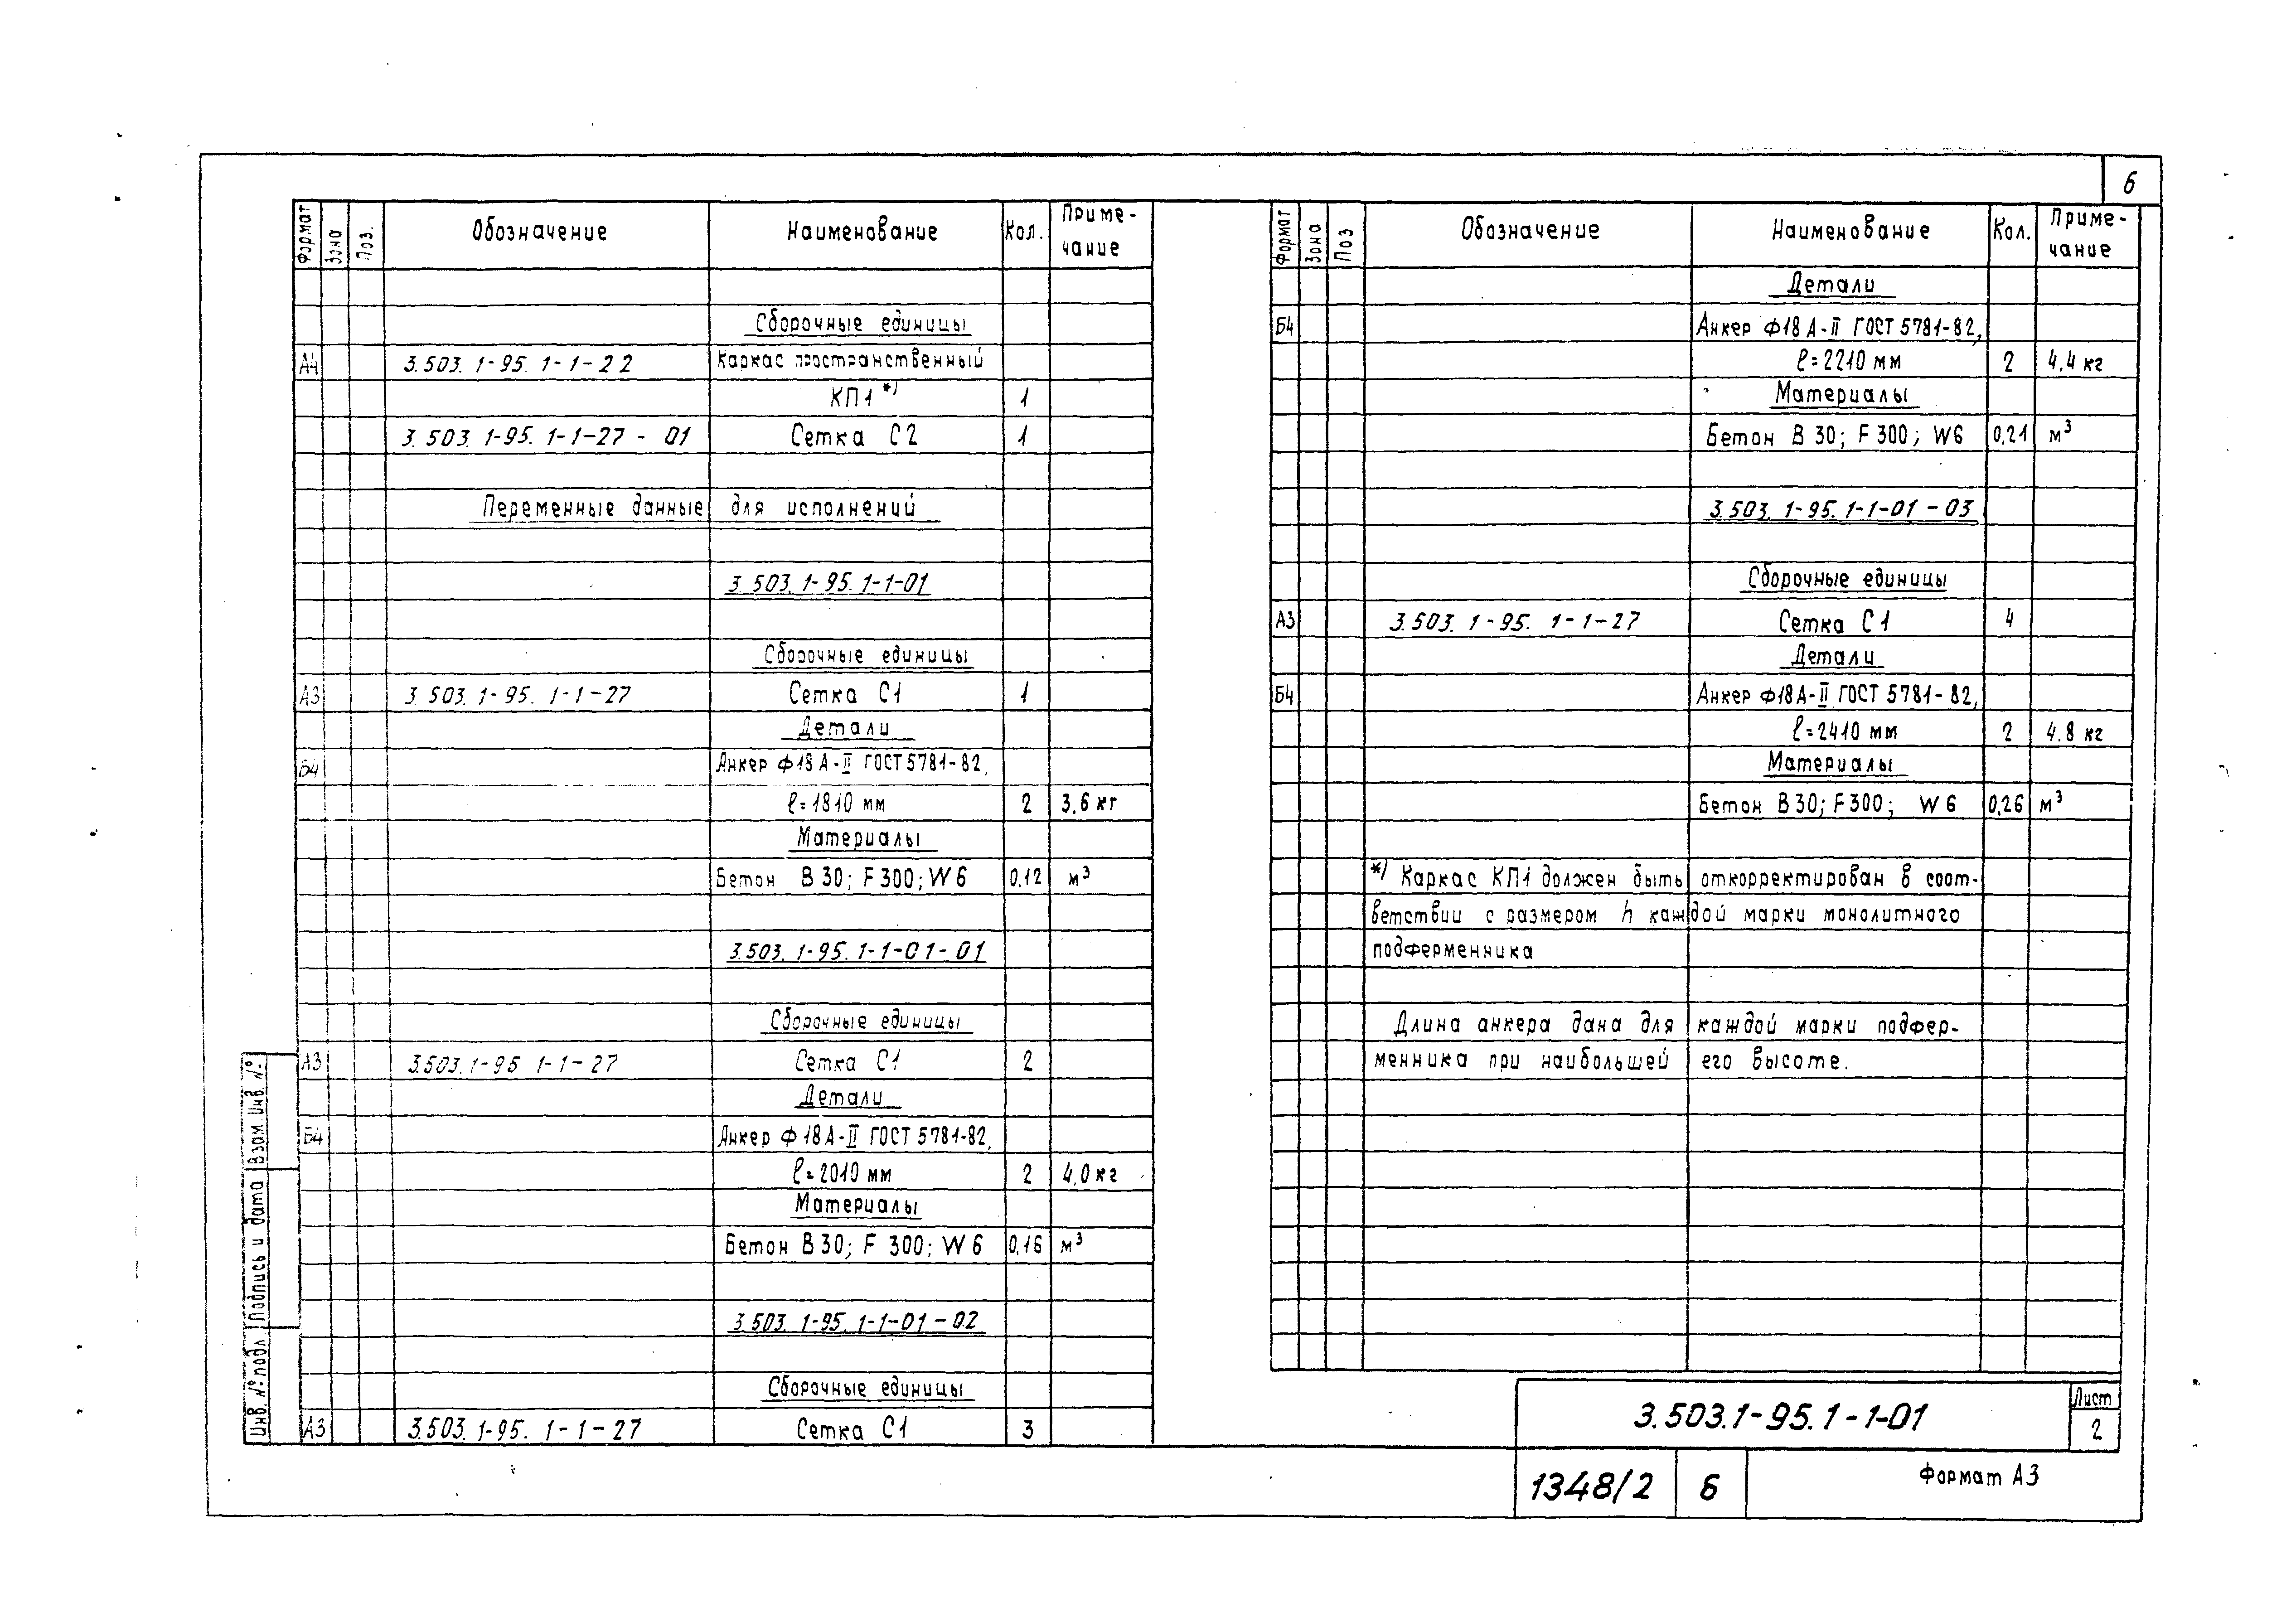 6
Формат Зона Поз. Обозначение Наименование Кол. Приме-
чание
Сборочные единицы
А4 3.503.1-95.1-1-22 Каркас пространственный
КП1 *) 1
3.503.1-95.1-1-27-01 Сетка С2 1
Переменные данные для исполнений
3.503.1-95.1-1-01
Сборочные единицы
А3 3.503.1-95.1-1-27 Сетка С1 1
Детали
Б4 Анкер Ф18 А-II ГОСТ 5781-82,
ℓ=1810 мм 2 3,6 кг
Материалы
Бетон В30; F300; W6 0,12 м³
3.503.1-95.1-1-01-01
Сборочные единицы
А3 3.503.1-95 1-1-27 Сетка С1 2
Детали
Б4 Анкер Ф18 А-II ГОСТ 5781-82,
ℓ=2010 мм 2 4,0 кг
Материалы
Бетон В30; F300; W6 0,16 м³
3.503.1-95.1-1-01-02
Сборочные единицы
А3 3.503.1-95.1-1-27 Сетка С1 3
Формат Зона Поз Обозначение Наименование Кол. Приме-
чание
Детали
Б4 Анкер Ф18 А-II ГОСТ 5781-82,
ℓ=2210 мм 2 4,4 кг
Материалы
Бетон В30; F300; W6 0,21 м³
3.503.1-95.1-1-01-03
Сборочные единицы
А3 3.503.1-95.1-1-27 Сетка С1 4
Детали
Б4 Анкер Ф18 А-II ГОСТ 5781-82,
ℓ=2410 мм 2 4.8 кг
Материалы
Бетон В30; F300; W6 0,26 м³
*) Каркас КП1 должен быть откорректирован в соот-
ветствии с размером h каждой марки монолитного
подферменника
Длина анкера дана для каждой марки подфер-
менника при наибольшей его высоте.
Инв. № подл Подпись и дата Взам. Инв. №
3.503.1-95.1-1-01
Лист
2
1348/2 6
Формат А3